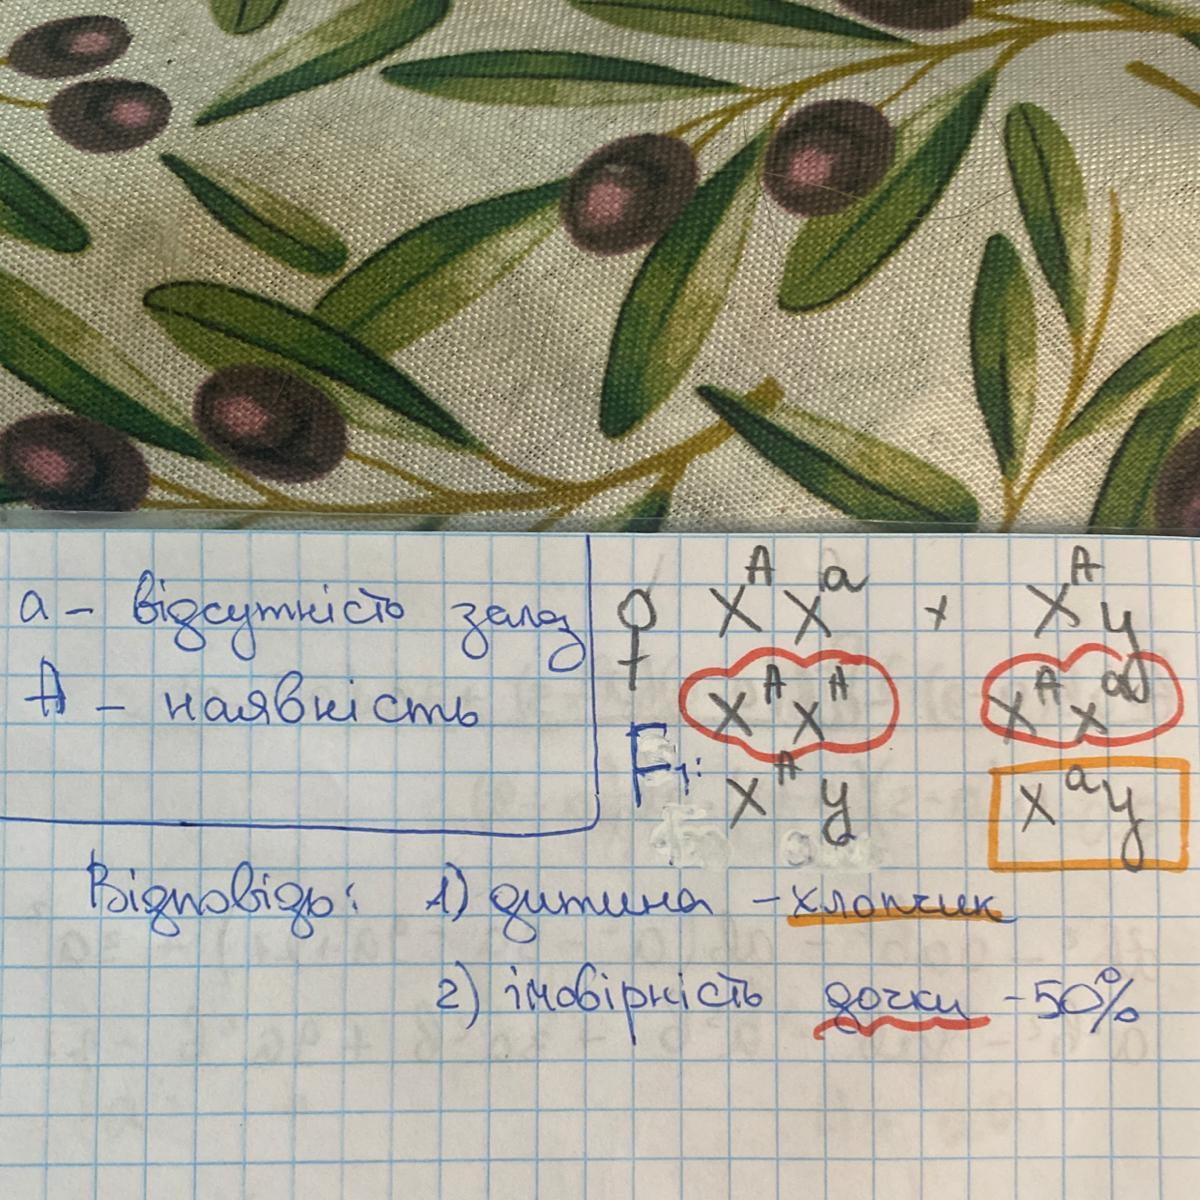 а - відсутність залоз
А - наявність
♀ X^A X^a × X^A y
X^A X^A X^A X^a
F₁:
X^A y X^a y
Відповідь: 1) дитина - хлопчик
2) імовірність дочки - 50%